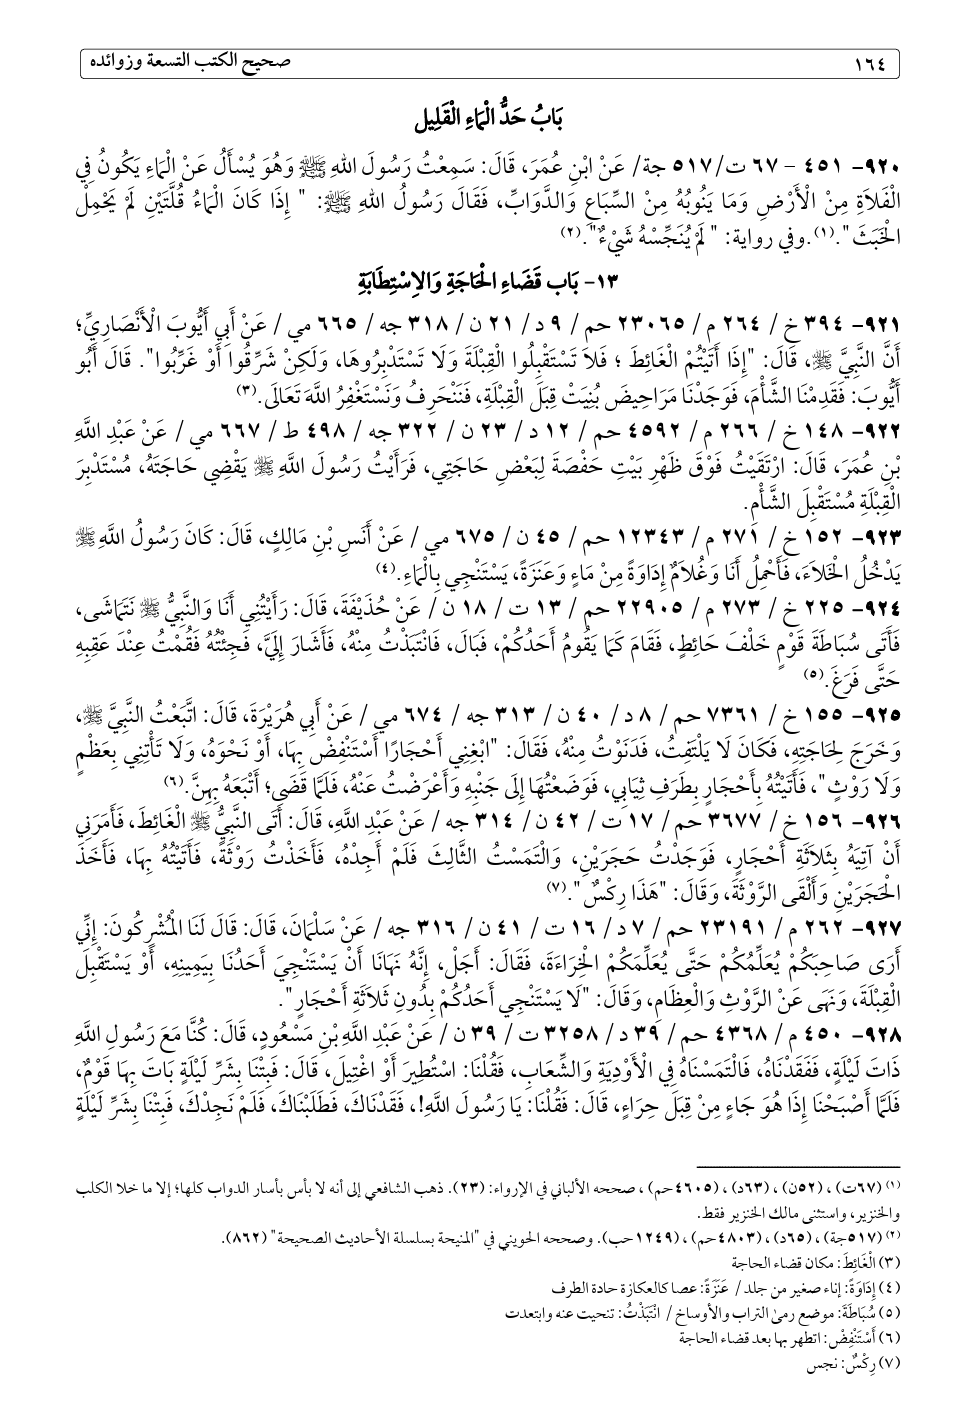 ١٦٤ صحيح الكتب التسعة وزوائده
بَابُ حَدُّ الْمَاءِ الْقَلِيل
٩٢٠- ٤٥١ – ٦٧ ت/ ٥١٧ جة/ عَنْ ابْنِ عُمَرَ، قَالَ: سَمِعْتُ رَسُولَ اللهِ ﷺ وَهُوَ يُسْأَلُ عَنْ الْمَاءِ يَكُونُ فِي
الْفَلَاةِ مِنْ الْأَرْضِ وَمَا يَنُوبُهُ مِنْ السِّبَاعِ وَالدَّوَابِّ، فَقَالَ رَسُولُ اللهِ ﷺ: " إِذَا كَانَ الْمَاءُ قُلَّتَيْنِ لَمْ يَحْمِلْ
الْخَبَثَ ".(١).وفي رواية: " لَمْ يُنَجِّسْهُ شَيْءٌ".(٢)
١٣- بَاب قَضَاءِ الْحَاجَةِ وَالِاسْتِطَابَةِ
٩٢١- ٣٩٤ خ/ ٢٦٤ م/ ٢٣٠٦٥ حم/ ٩ د/ ٢١ ن/ ٣١٨ جه/ ٦٦٥ مي/ عَنْ أَبِي أَيُّوبَ الْأَنْصَارِيِّ؛
أَنَّ النَّبِيَّ ﷺ، قَالَ: "إِذَا أَتَيْتُمْ الْغَائِطَ ؛ فَلَا تَسْتَقْبِلُوا الْقِبْلَةَ وَلَا تَسْتَدْبِرُوهَا، وَلَكِنْ شَرِّقُوا أَوْ غَرِّبُوا". قَالَ أَبُو
أَيُّوبَ: فَقَدِمْنَا الشَّأْمَ، فَوَجَدْنَا مَرَاحِيضَ بُنِيَتْ قِبَلَ الْقِبْلَةِ، فَنَنْحَرِفُ وَنَسْتَغْفِرُ اللهَ تَعَالَى.(٣)
٩٢٢- ١٤٨ خ/ ٢٦٦ م/ ٤٥٩٢ حم/ ١٢ د/ ٢٣ ن/ ٣٢٢ جه/ ٤٩٨ ط/ ٦٦٧ مي/ عَنْ عَبْدِ اللَّهِ
بْنِ عُمَرَ، قَالَ: ارْتَقَيْتُ فَوْقَ ظَهْرِ بَيْتِ حَفْصَةَ لِبَعْضِ حَاجَتِي، فَرَأَيْتُ رَسُولَ اللَّهِ ﷺ يَقْضِي حَاجَتَهُ، مُسْتَدْبِرَ
الْقِبْلَةِ مُسْتَقْبِلَ الشَّأْمِ.
٩٢٣- ١٥٢ خ/ ٢٧١ م/ ١٢٣٤٣ حم/ ٤٥ ن/ ٦٧٥ مي/ عَنْ أَنَسِ بْنِ مَالِكٍ، قَالَ: كَانَ رَسُولُ اللَّهِ ﷺ
يَدْخُلُ الْخَلَاءَ، فَأَحْمِلُ أَنَا وَغُلَامٌ إِدَاوَةً مِنْ مَاءٍ وَعَنَزَةً، يَسْتَنْجِي بِالْمَاءِ.(٤)
٩٢٤- ٢٢٥ خ/ ٢٧٣ م/ ٢٢٩٠٥ حم/ ١٣ ت/ ١٨ ن/ عَنْ حُذَيْفَةَ، قَالَ: رَأَيْتُنِي أَنَا وَالنَّبِيُّ ﷺ نَتَمَاشَى،
فَأَتَى سُبَاطَةَ قَوْمٍ خَلْفَ حَائِطٍ، فَقَامَ كَمَا يَقُومُ أَحَدُكُمْ، فَبَالَ، فَانْتَبَذْتُ مِنْهُ، فَأَشَارَ إِلَيَّ، فَجِئْتُهُ فَقُمْتُ عِنْدَ عَقِبِهِ
حَتَّى فَرَغَ.(٥)
٩٢٥- ١٥٥ خ/ ٧٣٦١ حم/ ٨ د/ ٤٠ ن/ ٣١٣ جه/ ٦٧٤ مي/ عَنْ أَبِي هُرَيْرَةَ، قَالَ: اتَّبَعْتُ النَّبِيَّ ﷺ،
وَخَرَجَ لِحَاجَتِهِ، فَكَانَ لَا يَلْتَفِتُ، فَدَنَوْتُ مِنْهُ، فَقَالَ: "ابْغِنِي أَحْجَارًا أَسْتَنْفِضْ بِهَا، أَوْ نَحْوَهُ، وَلَا تَأْتِنِي بِعَظْمٍ
وَلَا رَوْثٍ"، فَأَتَيْتُهُ بِأَحْجَارٍ بِطَرَفِ ثِيَابِي، فَوَضَعْتُهَا إِلَى جَنْبِهِ وَأَعْرَضْتُ عَنْهُ، فَلَمَّا قَضَى؛ أَتْبَعَهُ بِهِنَّ.(٦)
٩٢٦- ١٥٦ خ/ ٣٦٧٧ حم/ ١٧ ت/ ٤٢ ن/ ٣١٤ جه/ عَنْ عَبْدِ اللَّهِ، قَالَ: أَتَى النَّبِيُّ ﷺ الْغَائِطَ، فَأَمَرَنِي
أَنْ آتِيَهُ بِثَلَاثَةِ أَحْجَارٍ، فَوَجَدْتُ حَجَرَيْنِ، وَالْتَمَسْتُ الثَّالِثَ فَلَمْ أَجِدْهُ، فَأَخَذْتُ رَوْثَةً، فَأَتَيْتُهُ بِهَا، فَأَخَذَ
الْحَجَرَيْنِ وَأَلْقَى الرَّوْثَةَ، وَقَالَ: "هَذَا رِكْسٌ ".(٧)
٩٢٧- ٢٦٢ م/ ٢٣١٩١ حم/ ٧ د/ ١٦ ت/ ٤١ ن/ ٣١٦ جه/ عَنْ سَلْمَانَ، قَالَ: قَالَ لَنَا الْمُشْرِكُونَ: إِنِّي
أَرَى صَاحِبَكُمْ يُعَلِّمُكُمْ حَتَّى يُعَلِّمَكُمْ الْخِرَاءَةَ، فَقَالَ: أَجَلْ، إِنَّهُ نَهَانَا أَنْ يَسْتَنْجِيَ أَحَدُنَا بِيَمِينِهِ، أَوْ يَسْتَقْبِلَ
الْقِبْلَةَ، وَنَهَى عَنْ الرَّوْثِ وَالْعِظَامِ، وَقَالَ: "لَا يَسْتَنْجِي أَحَدُكُمْ بِدُونِ ثَلَاثَةِ أَحْجَارٍ ".
٩٢٨- ٤٥٠ م/ ٤٣٦٨ حم/ ٣٩ د/ ٣٢٥٨ ت/ ٣٩ ن/ عَنْ عَبْدِ اللَّهِ بْنِ مَسْعُودٍ، قَالَ: كُنَّا مَعَ رَسُولِ اللَّهِ
ذَاتَ لَيْلَةٍ، فَفَقَدْنَاهُ، فَالْتَمَسْنَاهُ فِي الْأَوْدِيَةِ وَالشِّعَابِ، فَقُلْنَا: اسْتُطِيرَ أَوْ اغْتِيلَ، قَالَ: فَبِتْنَا بِشَرِّ لَيْلَةٍ بَاتَ بِهَا قَوْمٌ،
فَلَمَّا أَصْبَحْنَا إِذَا هُوَ جَاءٍ مِنْ قِبَلَ حِرَاءٍ، قَالَ: فَقُلْنَا: يَا رَسُولَ اللَّهِ!، فَقَدْنَاكَ، فَطَلَبْنَاكَ، فَلَمْ نَجِدْكَ، فَبِتْنَا بِشَرِّ لَيْلَةٍ
(١) (٦٧ت)، (٥٢ن)، (٦٣د)، (٤٦٠٥حم)، صححه الألباني في الإرواء: (٢٣). ذهب الشافعي إلى أنه لا بأس بأسار الدواب كلها؛ إلا ما خلا الكلب
والخنزير، واستثنى مالك الخنزير فقط.
(٢) (٥١٧جة)، (٦٥د)، (٤٨٠٣حم)، (١٢٤٩حب). وصححه الحويني في "المنيحة بسلسلة الأحاديث الصحيحة" (٨٦٢).
(٣) الْغَائِطَ: مكان قضاء الحاجة
(٤) إِدَاوَةً: إناء صغير من جلد/ عَنَزَةً: عصا كالعكازة حادة الطرف
(٥) سُبَاطَةَ: موضع رمىٰ التراب والأوساخ / انْتَبَذْتُ: تنحيت عنه وابتعدت
(٦) أَسْتَنْفِضْ: اتطهر بها بعد قضاء الحاجة
(٧) رِكْسٌ: نجس